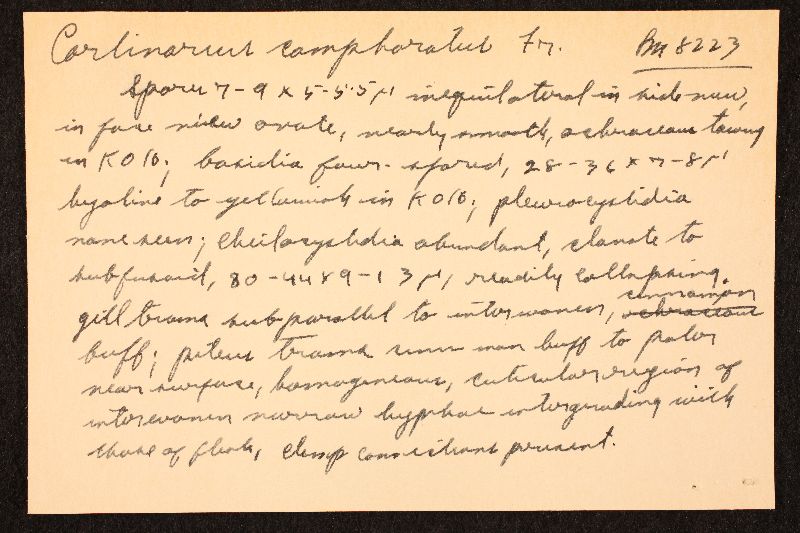 Cortinarius camphoratus Fr. Bn 8223
Spores 7-9 x 5-5.5 μ inequilateral in side view,
in face view ovate, nearly smooth, ochraceous tawny
in KOH; basidia four-spored, 28-36 x 7-8 μ
hyaline to yellowish in KOH; pleurocystidia
none seen; cheilocystidia abundant, clavate to
subfusoid, 80-44 x 9-13 μ, readily collapsing.
gill trama subparallel to interwoven, ochraceous cinnamon
buff; pileus trama cinnamon buff to paler
near surface, homogeneous, cuticular region of
interwoven narrow hyphae intergrading with
those of flesh, clamp connections present.